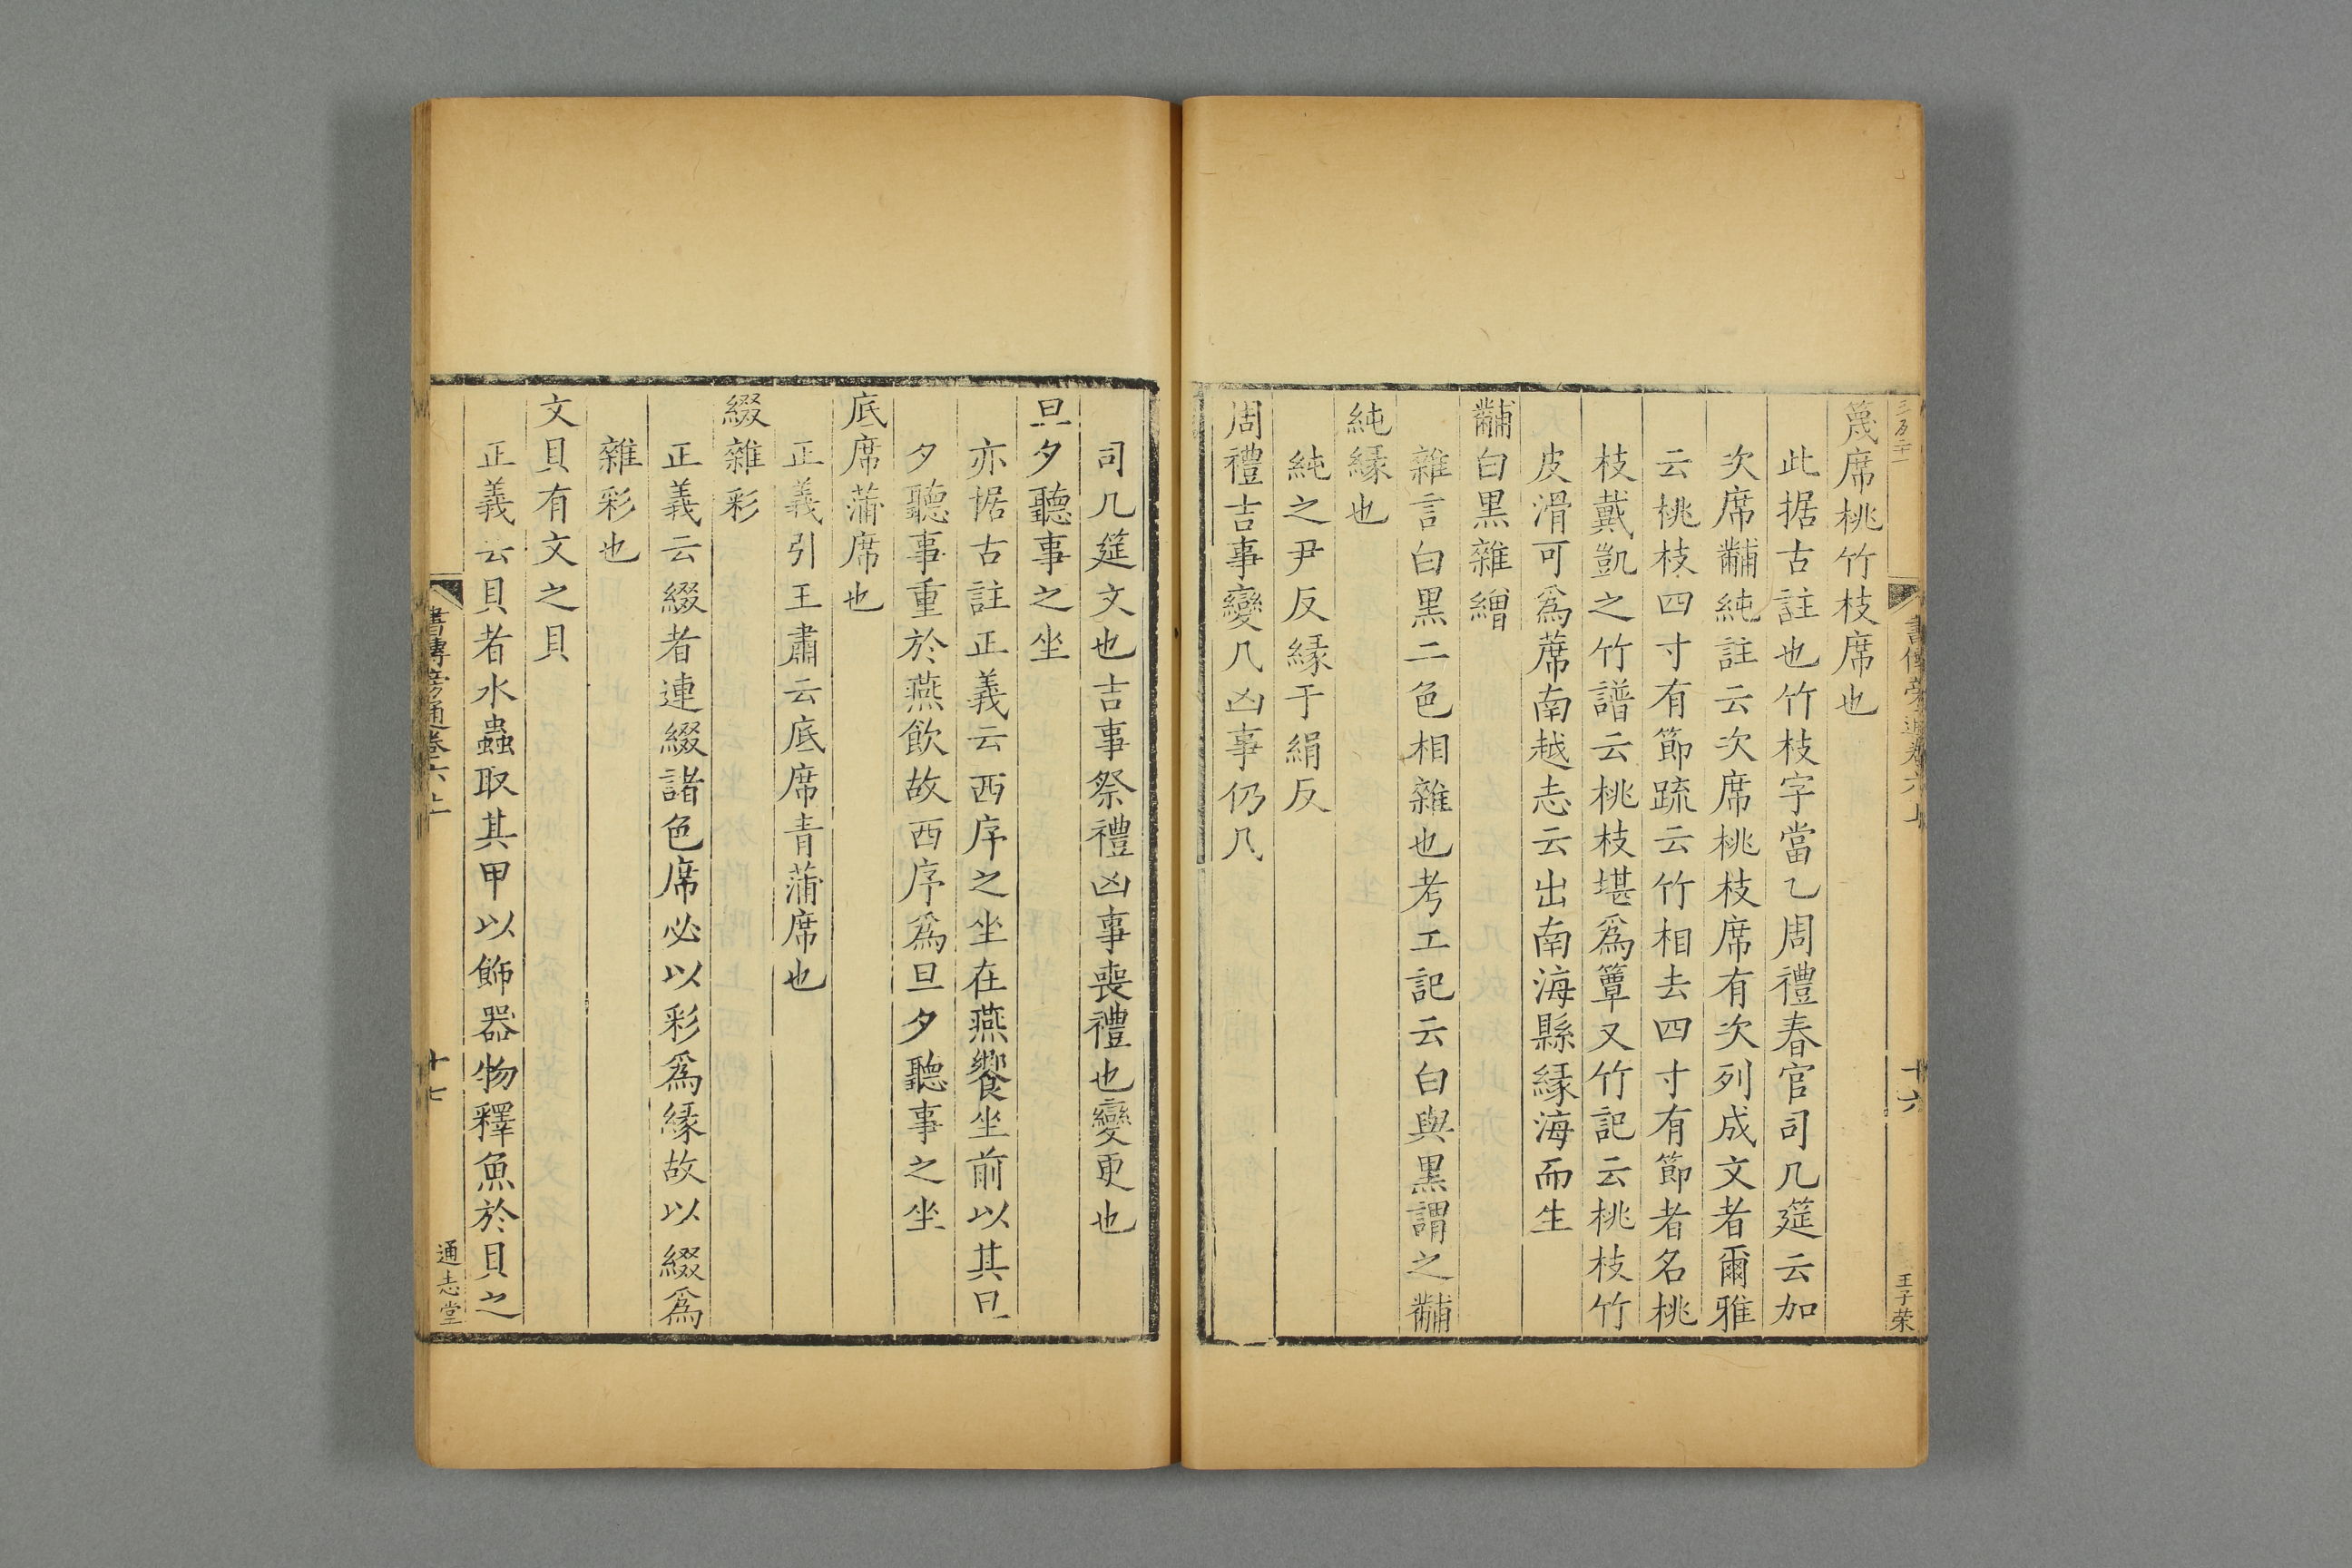 篾席桃竹枝席也
此据古註也竹枝字當乙周禮春官司几筵云加
次席黼純註云次席桃枝席有次列成文者爾雅
云桃枝四寸有節疏云竹相去四寸有節者名桃
枝戴凱之竹譜云桃枝堪爲簟又竹記云桃枝竹
皮滑可爲蓆南越志云出南海縣緣海而生
黼白黑雜繒
雜言白黑二色相雜也考工記云白與黑謂之黼
純緣也
純之尹反緣于絹反
周禮吉事變几凶事仍几
書傳旁通卷六上
十六
王子荣
司几筵文也吉事祭禮凶事喪禮也變更也
旦夕聽事之坐
亦据古註正義云西序之坐在燕饗坐前以其旦
夕聽事重於燕飲故西序爲旦夕聽事之坐
底席蒲席也
正義引王肅云底席青蒲席也
綴雜彩
正義云綴者連綴諸色席必以彩爲緣故以綴爲
雜彩也
文貝有文之貝
正義云貝者水蟲取其甲以飾器物釋魚於貝之
書傳旁通卷六上
十七
通志堂